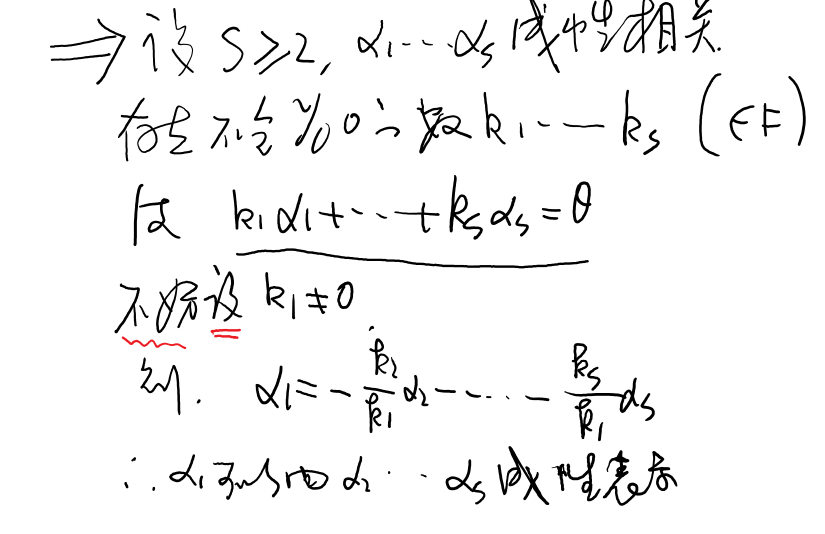 ⟹ 设 S≥2, α₁…αₛ 线性相关.
存在不全为0的数 k₁…kₛ (∈F)
使 k₁α₁+…+kₛαₛ=θ
不妨设 k₁≠0
则. α₁=-k₂/k₁ α₂-…-kₛ/k₁ αₛ
∴ α₁可以由 α₂…αₛ 线性表示